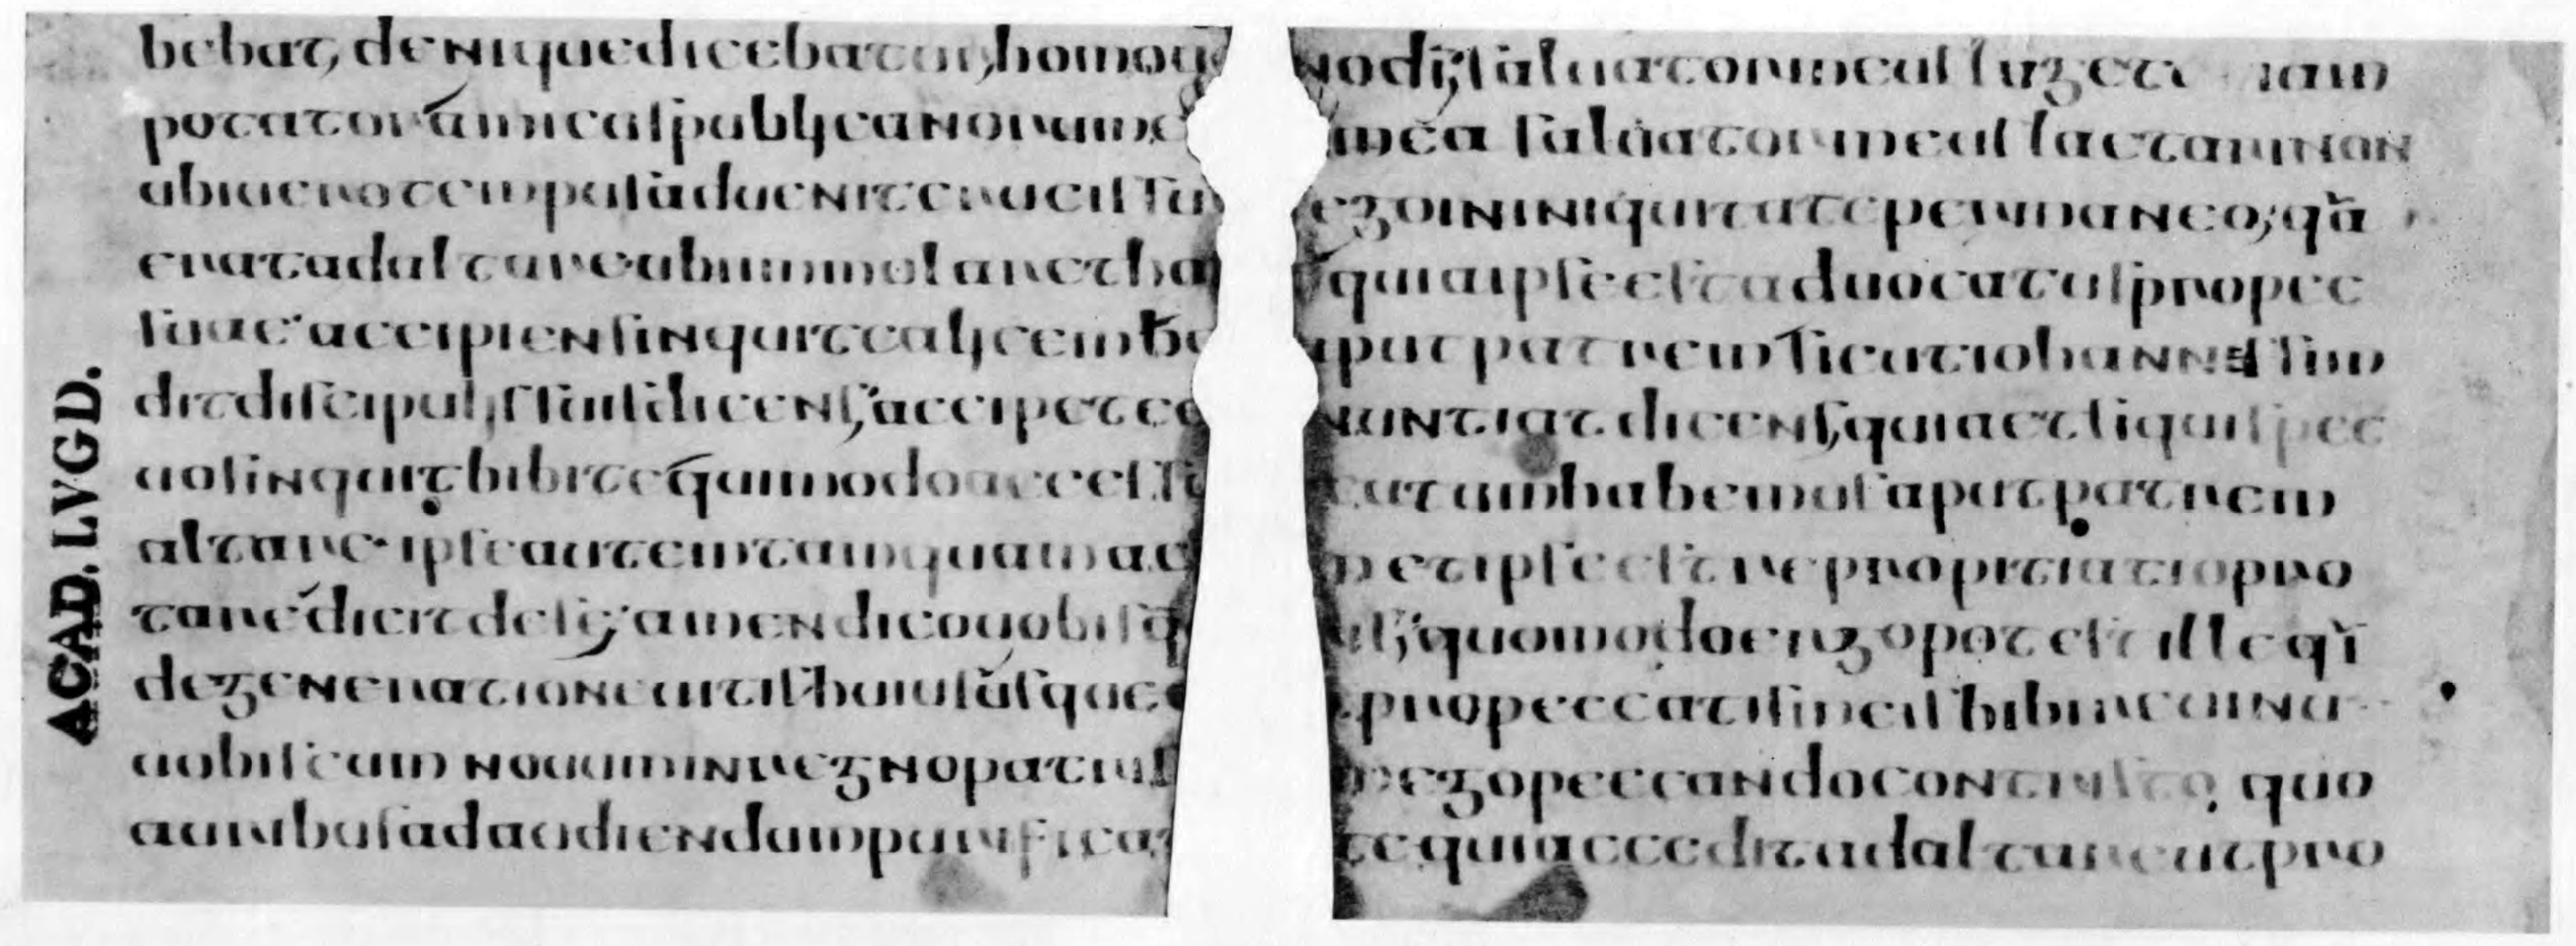 bebat, denique dicebatur, homo
potator amicus publicanorum
ubi uero tempus aduenit crucis su
erat ad altare ubi immolaret ho
suae accipiens inquit calicem be
dit discipulis suis dicens, accipete
uos inquit bibite qui modo accessu
altare ipse autem tamquam ac
tare dicit de se; amen dico uobis q
de generatione uitis huius usque
uobiscum nouum in regno patris
auribus ad audiendum purifica
nodis saluator meus luget iam
mea saluator meus laetari non
ego in iniquitate permaneo; qua
quia ipse est aduocatus pro pec
aput patrem sicut iohannes sim
nuntiat dicens, quia et si quis pec
catum habemus aput patrem
et ipse est repropitiatio pro
is; quomodo ergo potest ille qui
pro peccatis meis bibere uinu
ego peccando contristo, quo
te qui accedit ad altare ut pro
ACAD. LVGD.